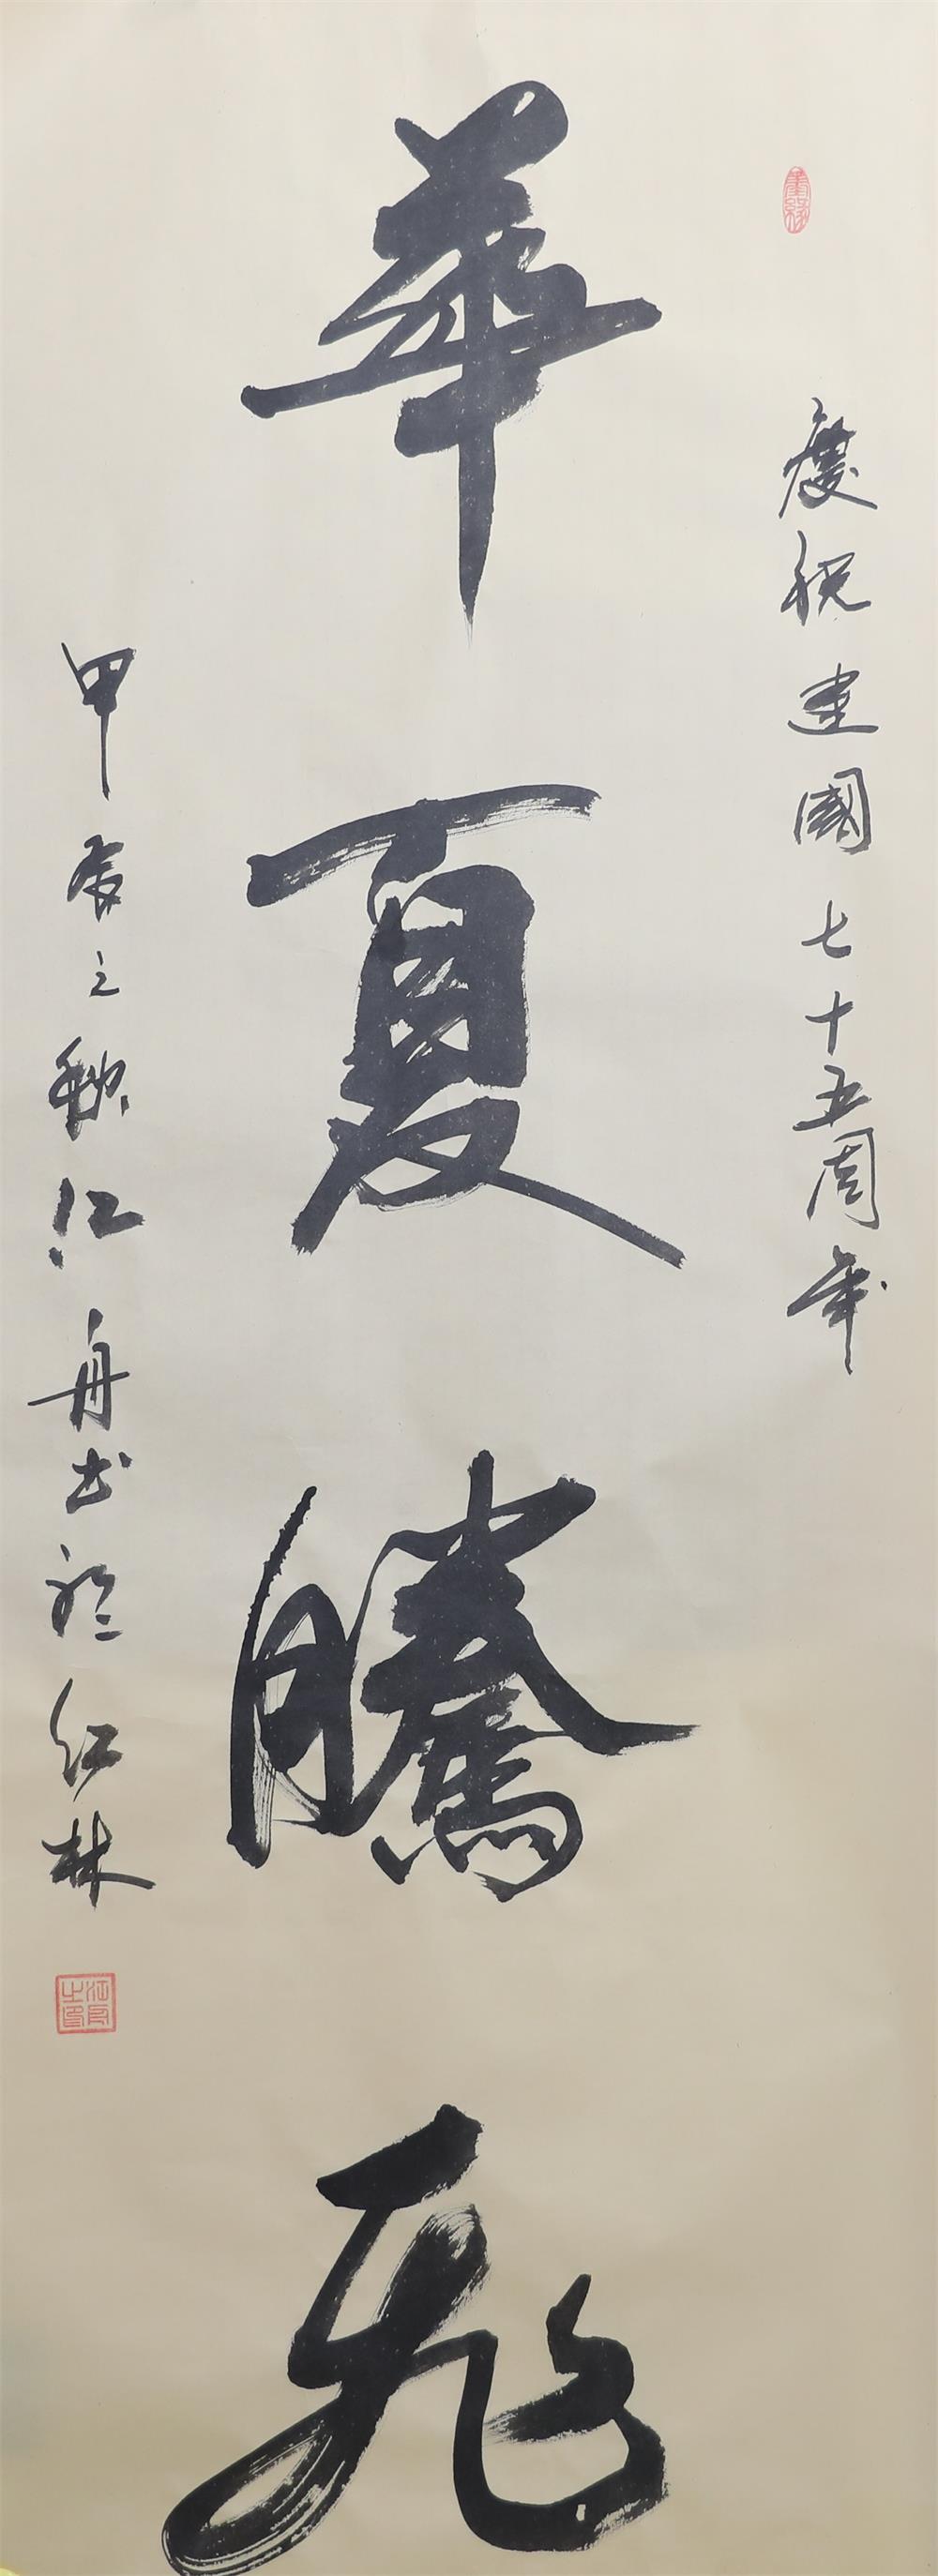 慶祝建國七十五周年
華夏騰飛
甲辰之秋江舟书於红林